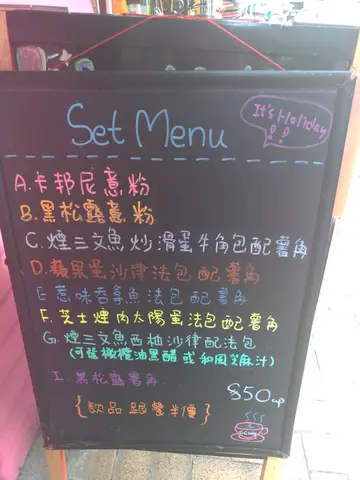 It's Holiday
Set Menu
A.卡邦尼意粉
B.黑松露意粉
C.煙三文魚炒滑蛋牛角包配薯角
D.蘋果蛋沙律法包配薯角
E.惹味吞拿魚法包配薯角
F.芝士煙肉太陽蛋法包配薯角
G.煙三文魚西柚沙律配法包
(可蘸橄欖油黑醋或和風芝麻汁)
I.黑松露薯角
$50up
{飲品跟餐半價}